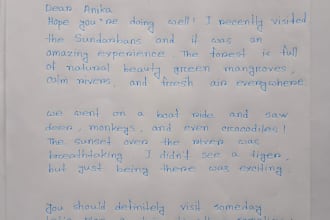 Dear Anika
Hope you're doing well! I recently visited
the Sundarbans and it was an
amazing experience. The forest is full
of natural beauty green mangroves,
calm rivers, and fresh air everywhere.
We went on a boat ride and saw
deer, monkeys, and even crocodiles!
The sunset over the river was
breathtaking. I didn't see a tiger,
but just being there was exciting.
you should definitely visit someday